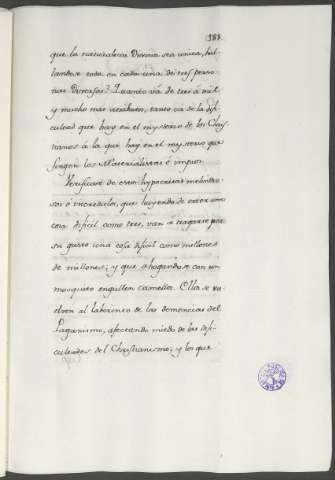 183.
que la naturaleza Divina sea unica, ha-
llandose toda en cada una de tres perso-
nas Diversas? Quanto vá de tres á mil,
y mucho mas rectiben, tanto vá de la difi-
cultad que hay en el mysterio de los Chris-
tianos á la que hay en el mysterio que
fingen los Materialistas ó impios.
Verificase de estos hypocritas melindro-
sos é incredulos, que huyendo de creer una
cosa dificil como tres, van á tragarse por
su gusto una cosa dificil como millones
de millones; y que ahogandose con un
mosquito engullen camellos. Ellos se vu-
elven al laberinto de las demencias del
Paganismo, afectando miedo de las difi-
cultades del Christianismo; y los que